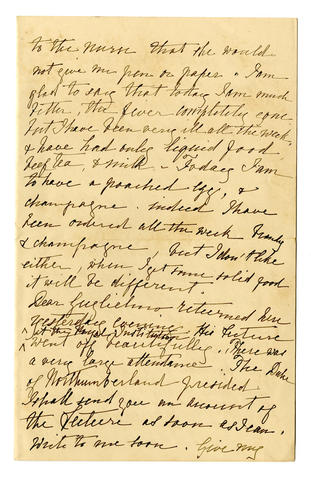 to the nurse that she would
not give me pen or paper. I am
glad to say that today I am much
better, the fever completely gone
but I have been very ill all the week
& have had only liquid food,
beef tea, & milk - Today I am
to have a poached egg, &
champagne. Indeed I have
been ordered all the week brandy
& champagne, but I don't like
either, when I get some solid food
it will be different.
Dear Guglielmo returned here
yesterday evening. His lecture
^ at the Royal Institution
went off beautifully. There was
a very large attendance. The Duke
of Northumberland presided
I shall send you an account of
the lecture as soon as I can.
Write to me soon. Give my